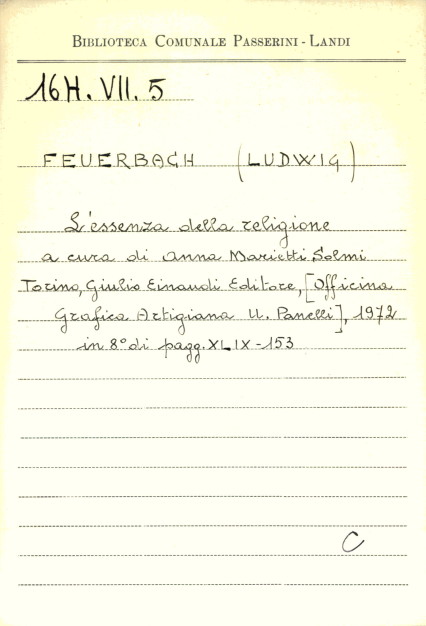 BIBLIOTECA COMUNALE PASSERINI - LANDI
16H. VII. 5
FEUERBACH (LUDWIG)
L'essenza della religione
a cura di Anna Marietti Solmi
Torino, Giulio Einaudi Editore, [Officina
Grafica Artigiana U. Panelli], 1972
in 8° di pagg. XLIX-153
C